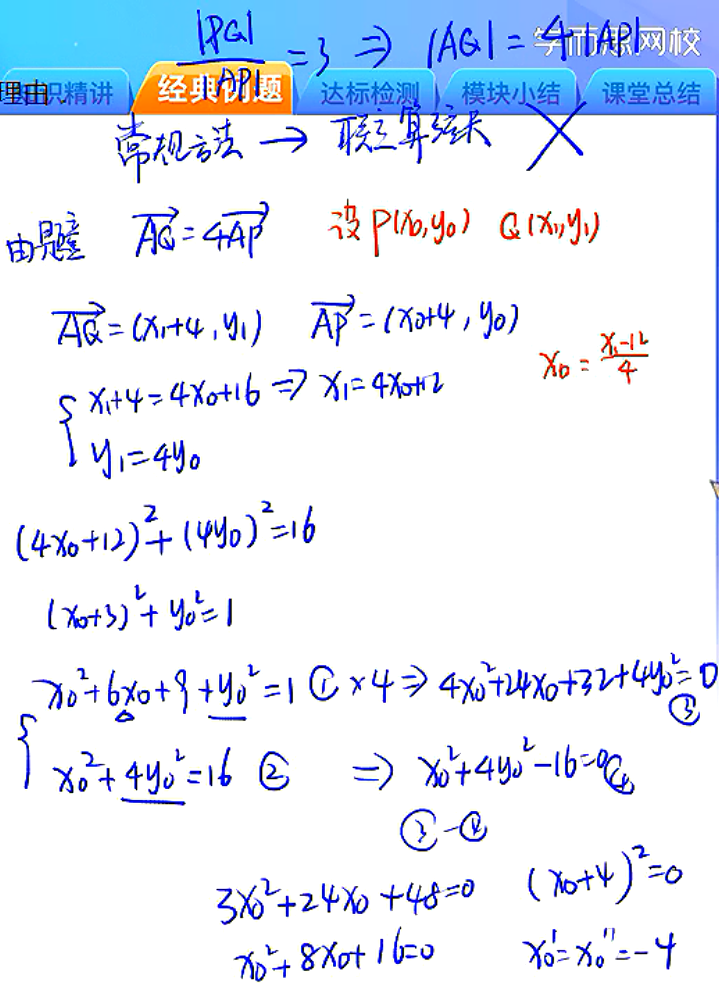 |PQ|/|AP| = 3 ⇒ |AQ| = 4|AP|
学而思网校
理由. 知识精讲 经典例题 达标检测 模块小结 课堂总结
常规方法 → 联立算弦长 ×
由题意 AQ⃗ = 4AP⃗ 设P(x₀,y₀) Q(x₁,y₁)
AQ⃗ = (x₁+4, y₁) AP⃗ = (x₀+4, y₀)
x₀ = (x₁-12)/4
{ x₁+4 = 4x₀+16 ⇒ x₁ = 4x₀+12
y₁ = 4y₀
(4x₀+12)² + (4y₀)² = 16
(x₀+3)² + y₀² = 1
{ x₀² + 6x₀ + 9 + y₀² = 1 ① ×4 ⇒ 4x₀²+24x₀+32+4y₀² = 0 ③
x₀² + 4y₀² = 16 ② ⇒ x₀²+4y₀²-16 = 0 ④
③-④
3x₀²+24x₀+48=0 (x₀+4)²=0
x₀²+8x₀+16=0 x₀'=x₀''=-4